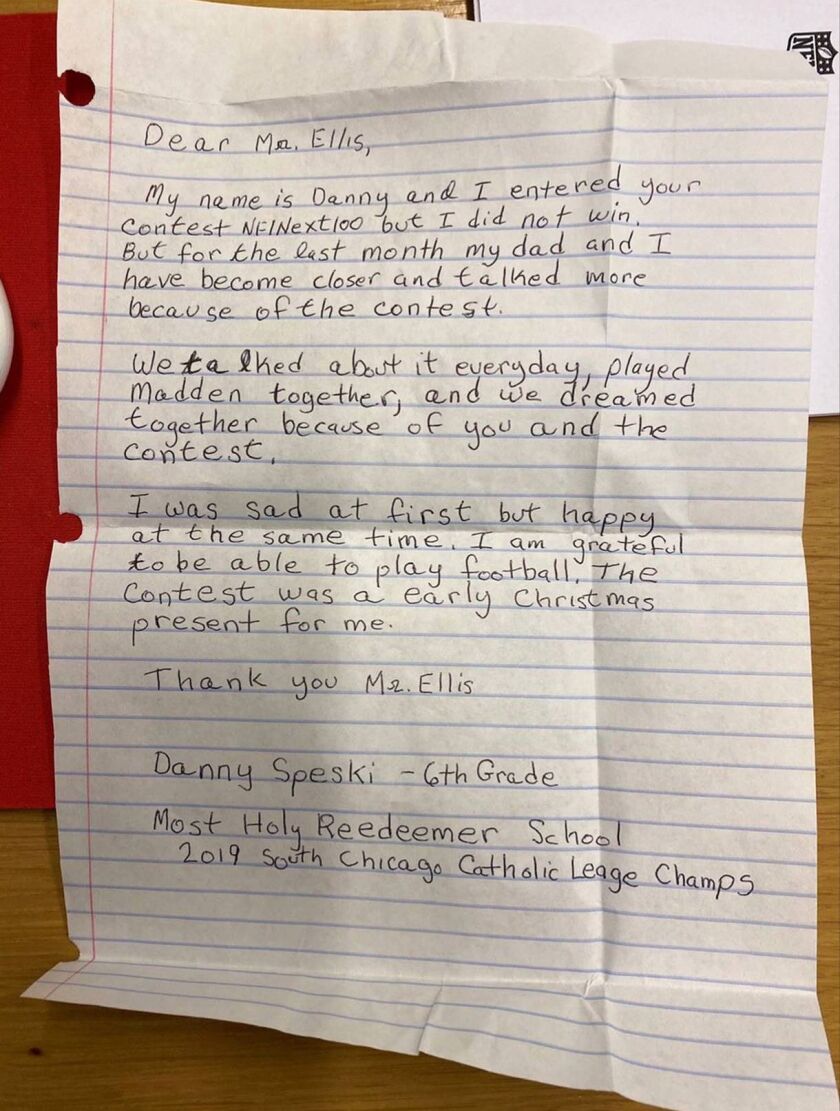 NFL
Dear Mr. Ellis,
My name is Danny and I entered your
contest NFlNext100 but I did not win.
But for the last month my dad and I
have become closer and talked more
because of the contest.
We talked about it everyday, played
Madden together, and we dreamed
together because of you and the
contest.
I was sad at first but happy
at the same time. I am grateful
to be able to play football. The
contest was a early Christmas
present for me.
Thank you Mr. Ellis
Danny Speski - 6th Grade
Most Holy Reedeemer School
2019 South Chicago Catholic Leage Champs